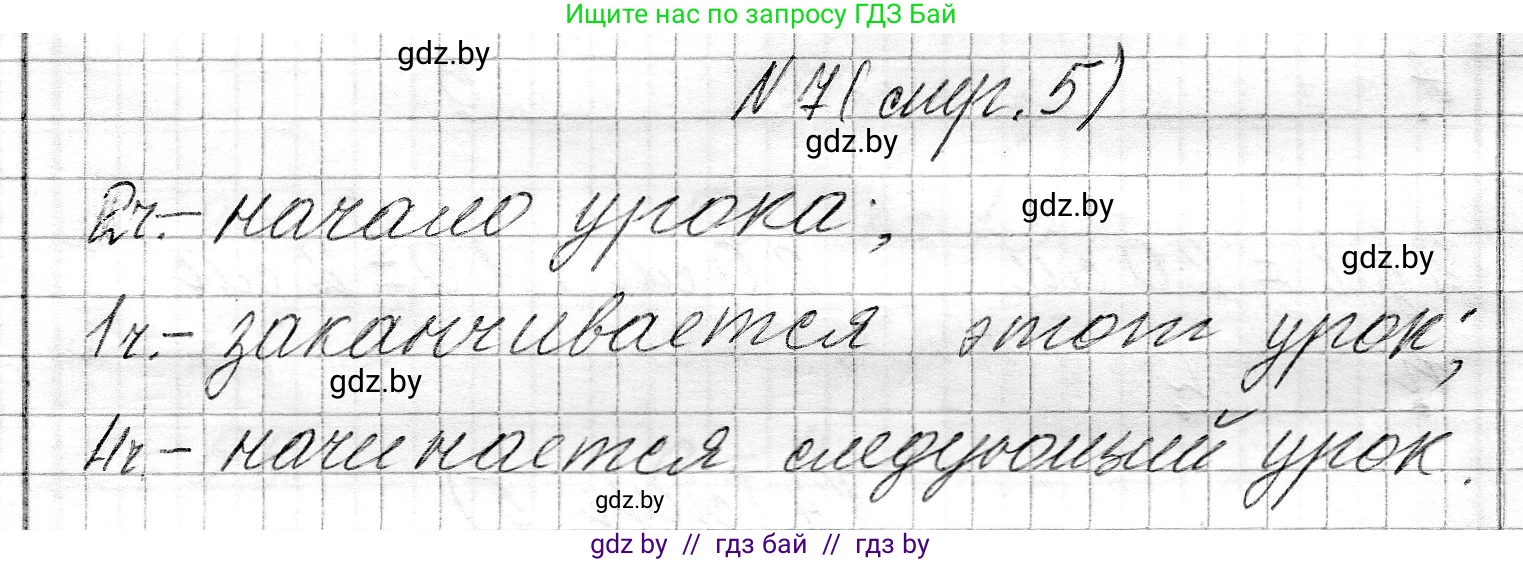 Ищите нас по запросу ГДЗ Бай
gdz.by
N 7 (стр. 5)
gdz.by
2ч. – начало урока;
gdz.by
gdz.by
1ч. – заканчивается этот урок;
gdz.by
4ч. – начинается следующий урок.
gdz.by
gdz by // гдз бай // гдз by